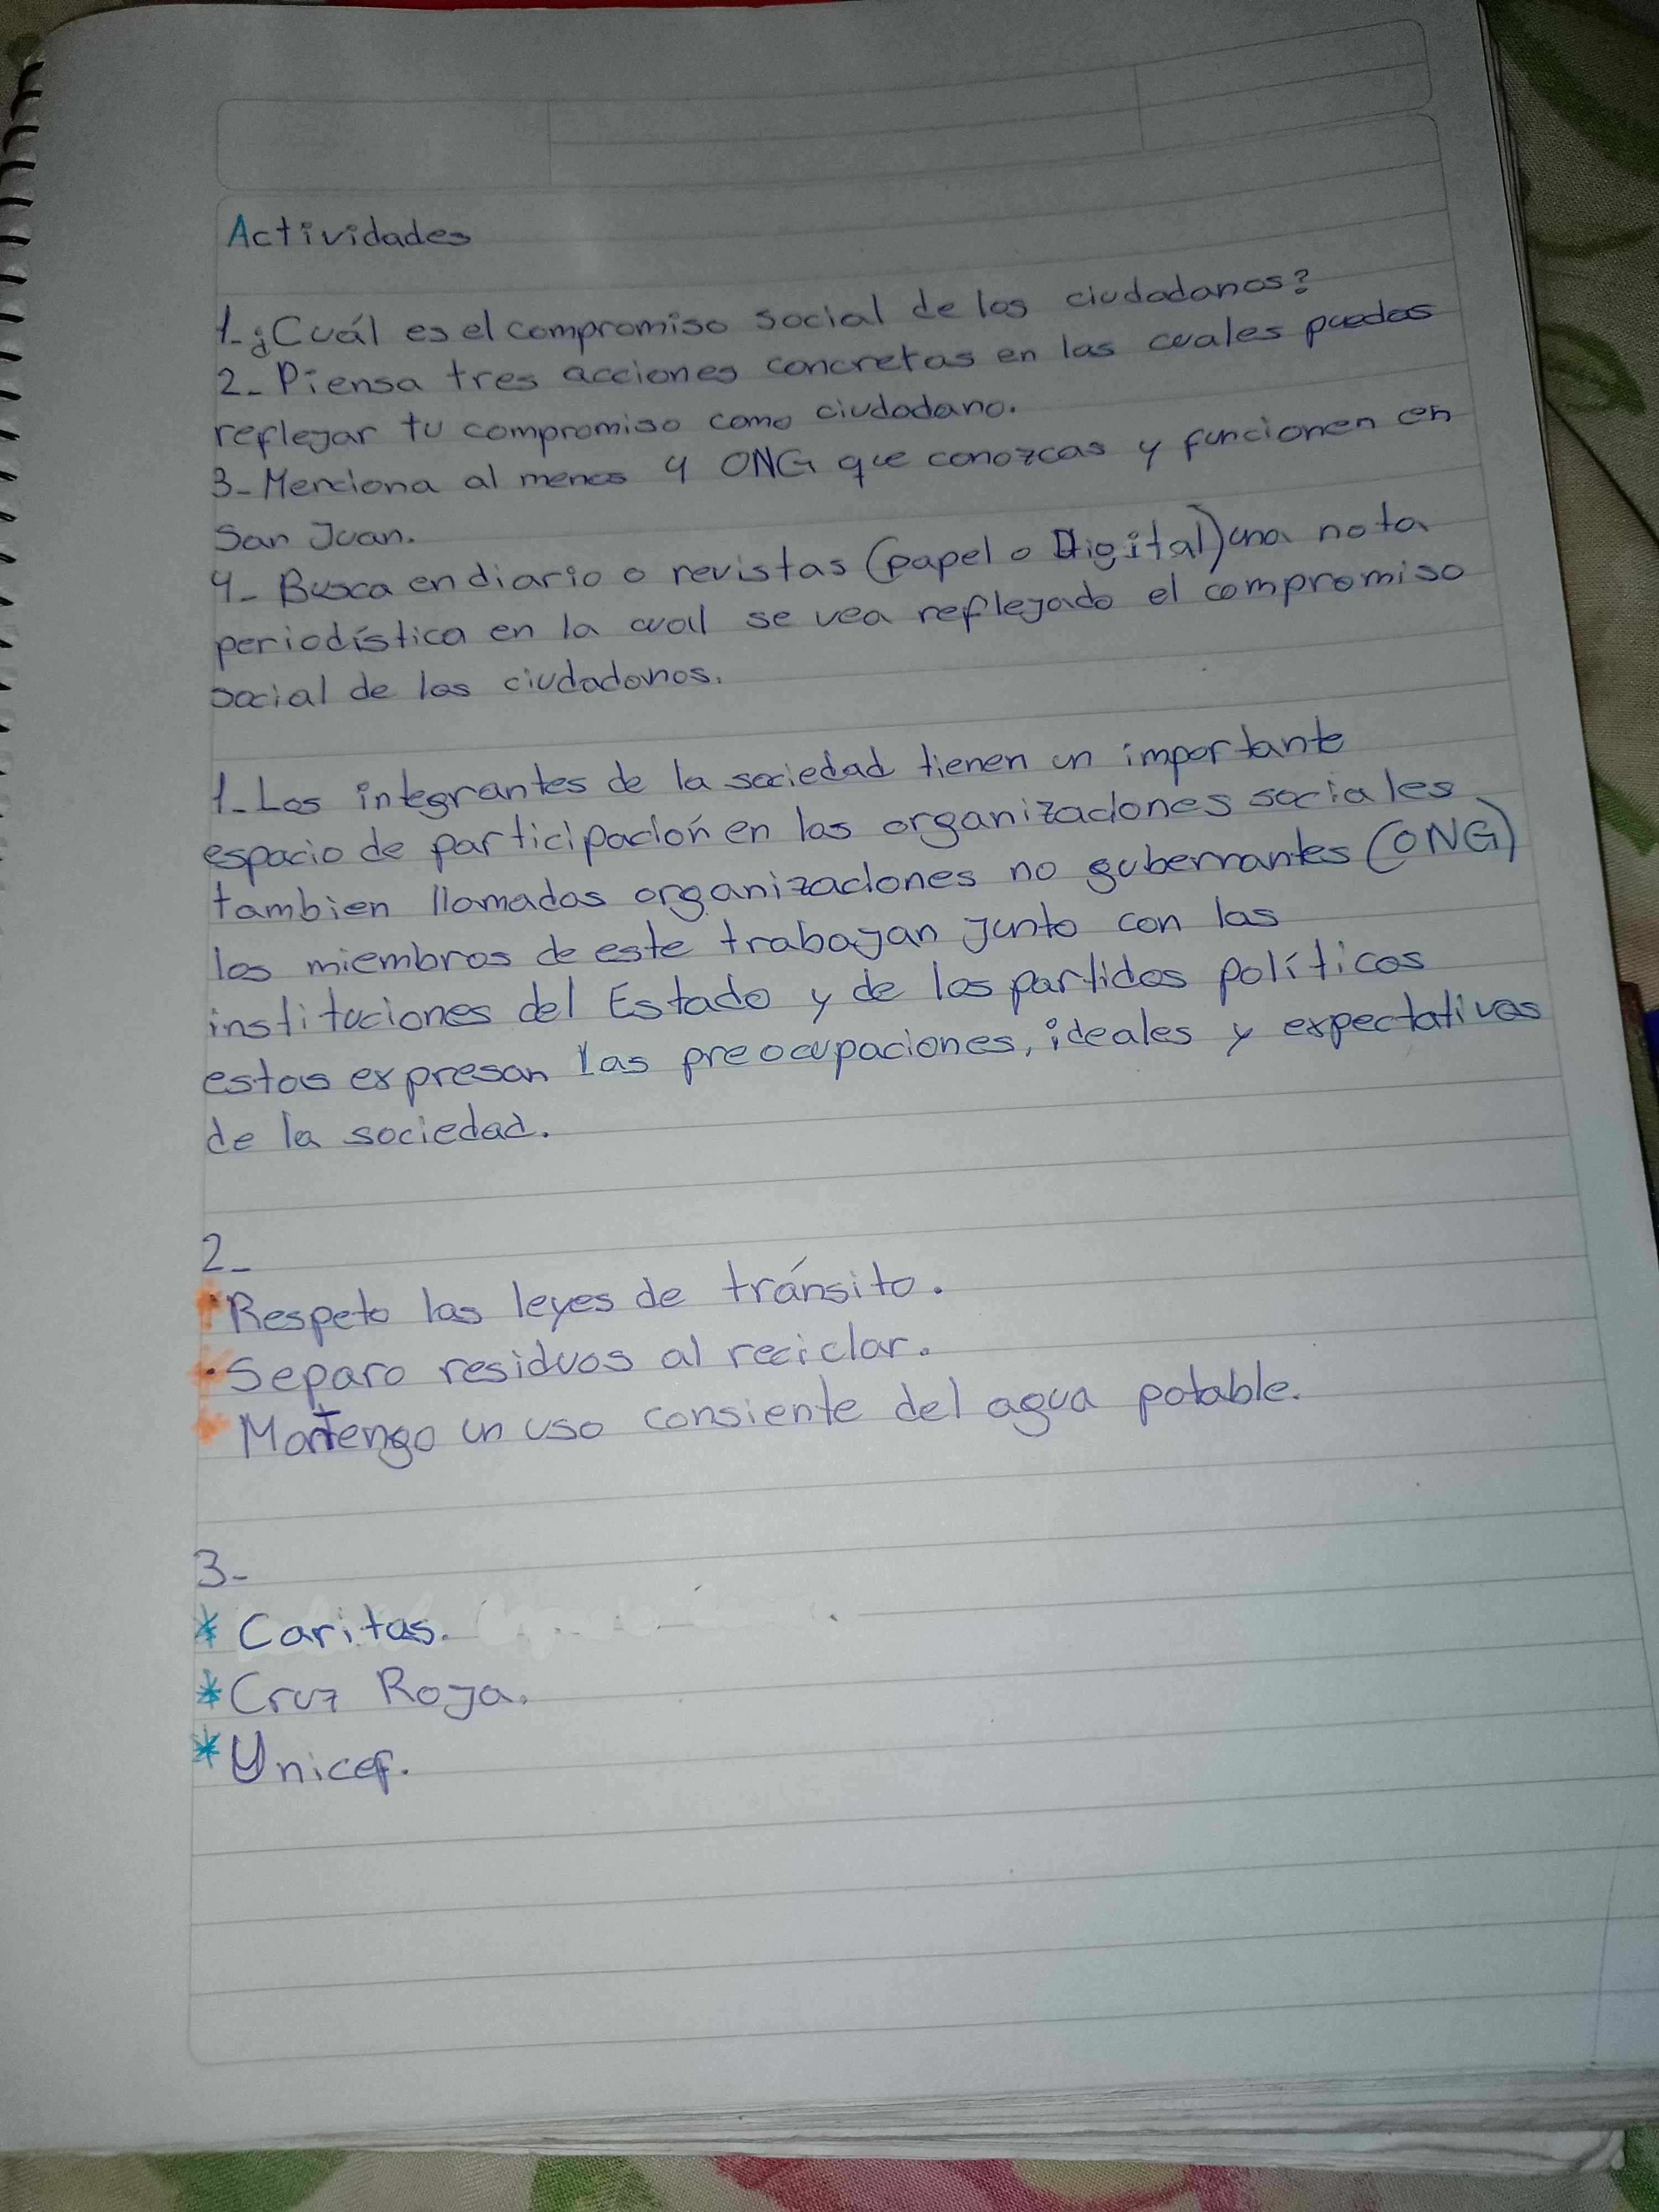 Actividades
1-¿Cuál es el compromiso social de los ciudadanos?
2- Piensa tres acciones concretas en las cuales puedas
reflejar tu compromiso como ciudadano.
3- Menciona al menos 4 ONG que conozcas y funcionen en
San Juan.
4- Busca en diario o revistas (papel o Digital) una nota
periodística en la cual se vea reflejado el compromiso
social de los ciudadanos.
1- Los integrantes de la sociedad tienen un importante
espacio de participación en las organizaciones sociales
tambien llamados organizaciones no gubernantes (ONG)
los miembros de este trabajan junto con las
instituciones del Estado y de los partidos políticos
estos expresan las preocupaciones, ideales y expectativas
de la sociedad.
2-
Respeto las leyes de tránsito.
• Separo residuos al reciclar.
Mantengo un uso consiente del agua potable.
3-
* Caritas.
* Cruz Roja.
* Unicef.